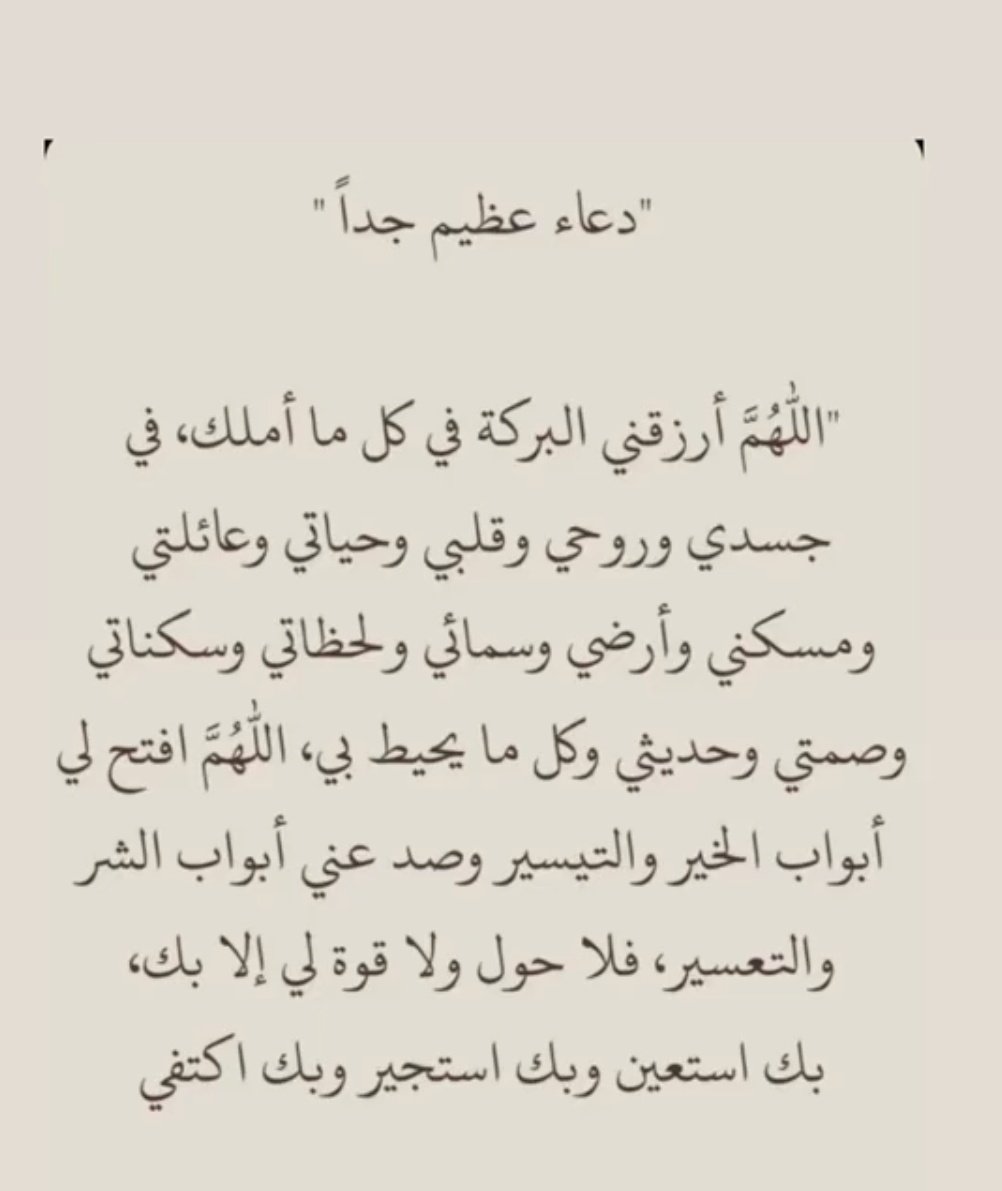 "دعاء عظيم جداً "
"اللّٰهُمَّ أرزقني البركة في كل ما أملك، في
جسدي وروحي وقلبي وحياتي وعائلتي
ومسكني وأرضي وسمائي ولحظاتي وسكناتي
وصمتي وحديثي وكل ما يحيط بي، اللّٰهُمَّ افتح لي
أبواب الخير والتيسير وصد عني أبواب الشر
والتعسير، فلا حول ولا قوة لي إلا بك،
بك استعين وبك استجير وبك اكتفي